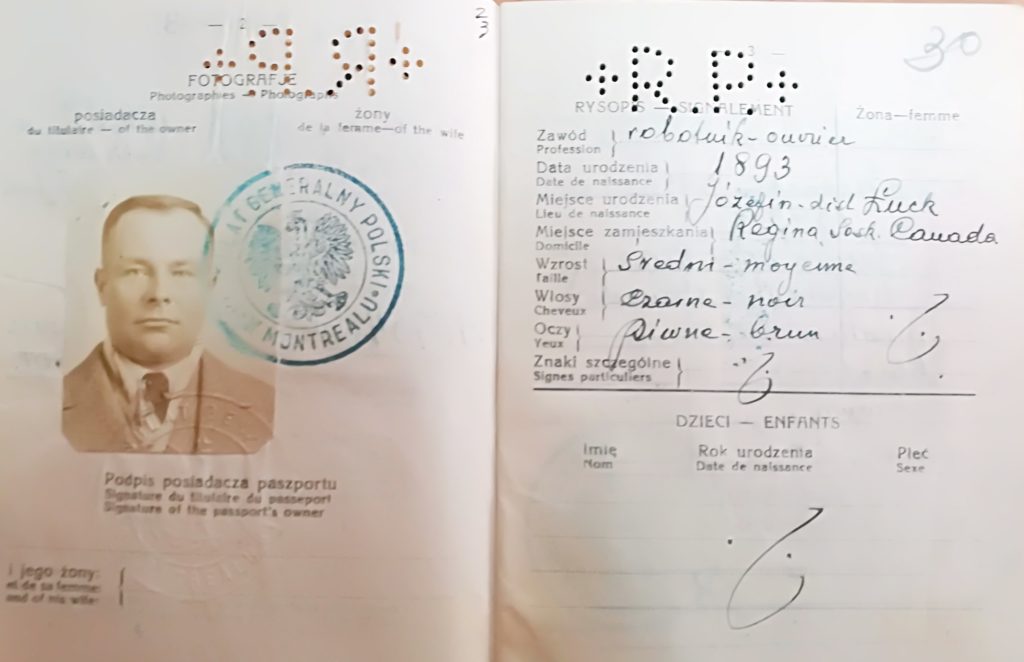 — 2 —
2
3
+P.R+
FOTOGRAFJE
Photographies — Photographs
posiadacza
du titulaire — of the owner
żony
de la femme—of the wife
GENERALNY POLSKI
MONTREALU
Podpis posiadacza paszportu
Signature du titulaire du passeport
Signature of the passport's owner
i jego żony:
et de sa femme:
and of his wife:
3 —
30
+R.P+
RYSOPIS — SIGNALEMENT
Żona—femme
Zawód robotnik - ouvrier
Profession
Data urodzenia 1893
Date de naissance
Miejsce urodzenia Józefin - dist Łuck
Lieu de naissance
Miejsce zamieszkania Regina, Sask. Canada
Domicile
Wzrost Średni - moyenne
Taille
Włosy Czarne - noir
Cheveux
Oczy Piwne - brun
Yeux
Znaki szczególne
Signes particuliers
DZIECI — ENFANTS
Imię
Nom
Rok urodzenia
Date de naissance
Płeć
Sexe